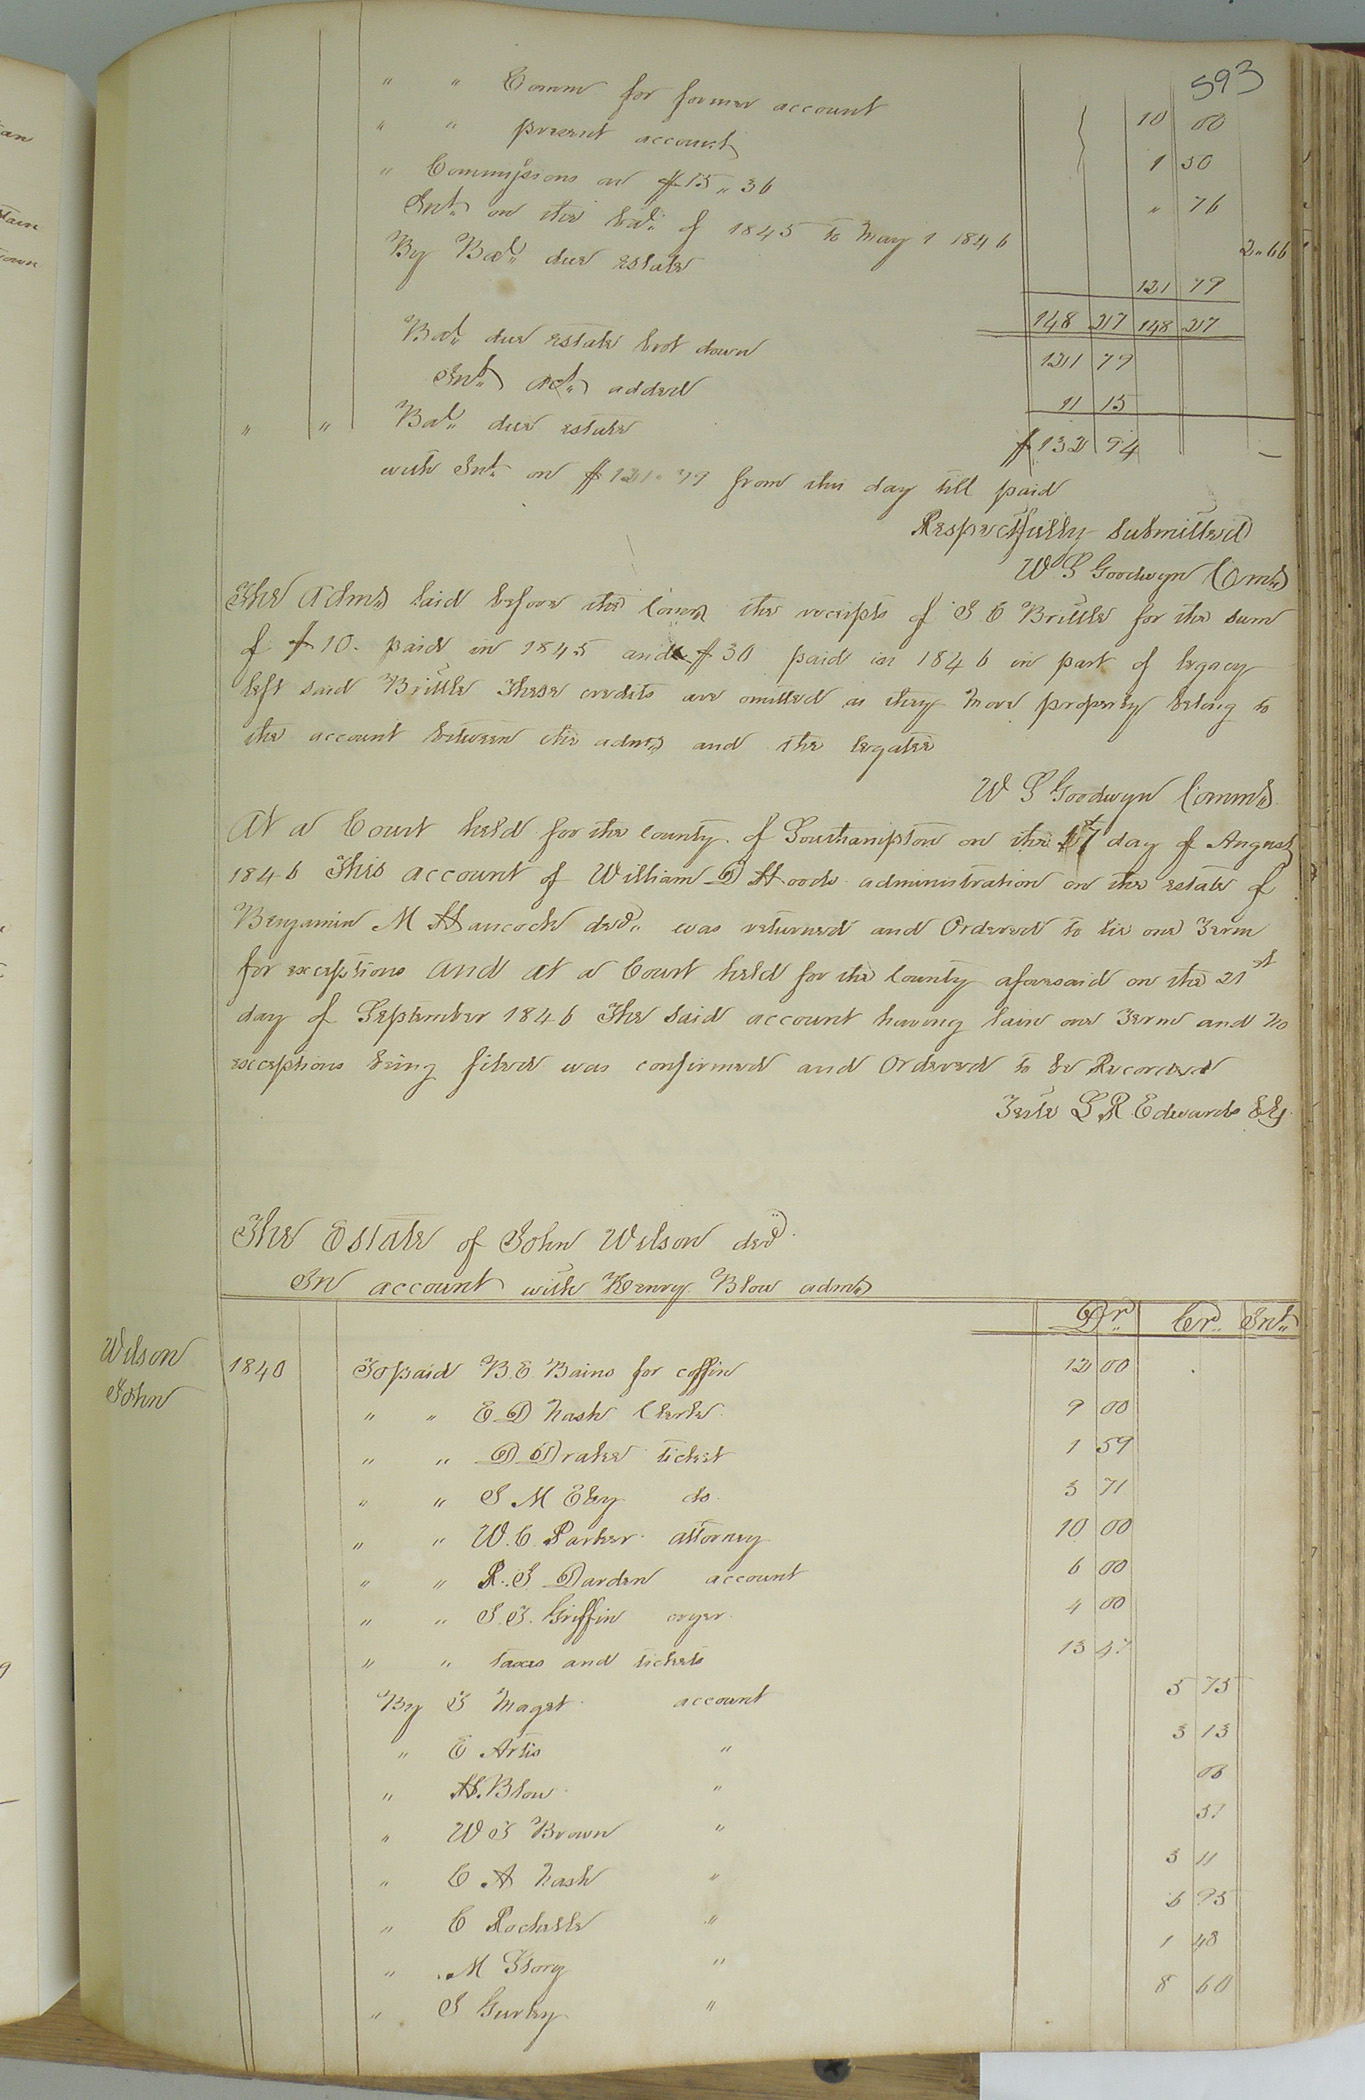 593
" " Comm for former account 10 00
" " present account 1 50
" Commissions on $15 " 36 " 76
Int. on the bal. of 1845 to May 1 1846 2 " 66
By Bal. due estate 121 79
148 27 148 27
Bal. due estate brot down 121 79
Int. act. added 11 15
" " Bal. due estate $132 94
with Int. on $121.79 from this day till paid
Respectfully submitted
W S Goodwyn Comr
The Admr laid before the Comr the receipts of J E Brittle for the sum
of $10. paid in 1845 and $30 paid in 1846 in part of legacy
left said Brittle These credits are omitted as they more property belong to
the account between the admr and the legatee
W S Goodwyn Commr.
At a Court held for the county of Southampton on the day of August
1846 This account of William D Hoods administration on the estate of
Benjamin M Hancock decd. was returned and Ordered to lie one Term
for exceptions and at a Court held for the County aforesaid on the 21st
day of September 1846 The said account having lain one Term and no
exceptions being filed was confirmed and Ordered to be Recorded
Teste L R Edwards Clk
The Estate of John Wilson decd.
In account with Henry Blow admr
Dr. Cr. Int.
Wilson
John
1840 To paid B. E. Bains for coffin 12 00
" " E D Nash Clerk 9 00
" " D Drake ticket 1 59
" " J M Eley do. 3 71
" " W. C. Parker attorney 10 00
" " R. J Darden account 6 00
" " J. J. Griffin cryer 4 00
" " taxes and tickets 13 47
By J Maget account 5 75
" E Artis " 3 13
" H. Blow " 06
" W J Brown " 57
" C A Nash " 3 11
" C Rochelle " 6 95
" M Story " 1 48
" J Gurley " 8 60